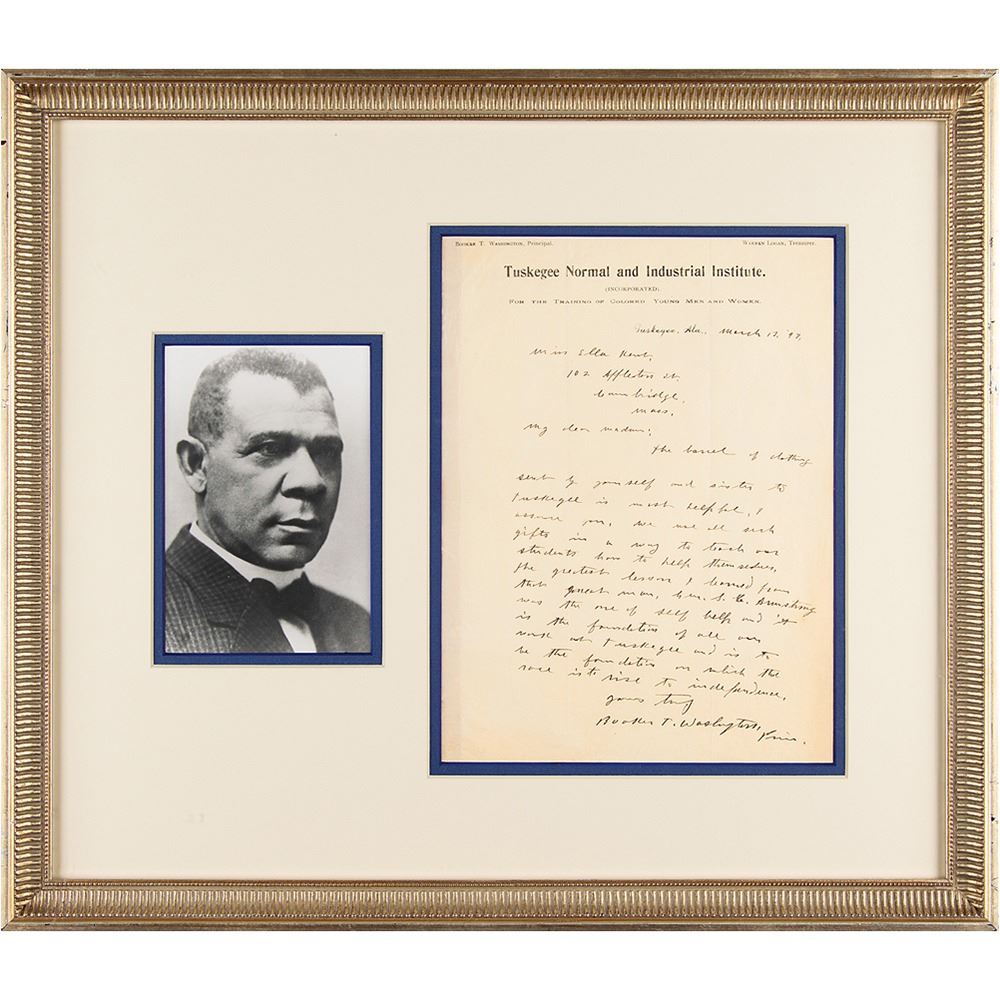 BOOKER T. WASHINGTON, Principal.
WARREN LOGAN, Treasurer.
Tuskegee Normal and Industrial Institute.
(INCORPORATED)
FOR THE TRAINING OF COLORED YOUNG MEN AND WOMEN.
Tuskegee, Ala., March 12, '97,
Miss Ella
102 Appleton St.
Cambridge,
Mass.
My dear madam:
The barrel of clothing
sent by yourself and sister to
Tuskegee is most helpful. I
assure you, we use all such
gifts in a way to teach our
students how to help themselves.
The greatest lesson I learned from
that great man, Gen. S. C. Armstrong
was the one of self help and it
is the foundation of all our
work at Tuskegee and is to
be the foundation on which the
race is to rise to independence.
Yours truly
Booker T. Washington,
Prin.